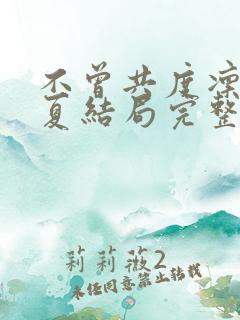 不曾共度凛
夏结局完整
莉莉薇2
未经同意禁止转载